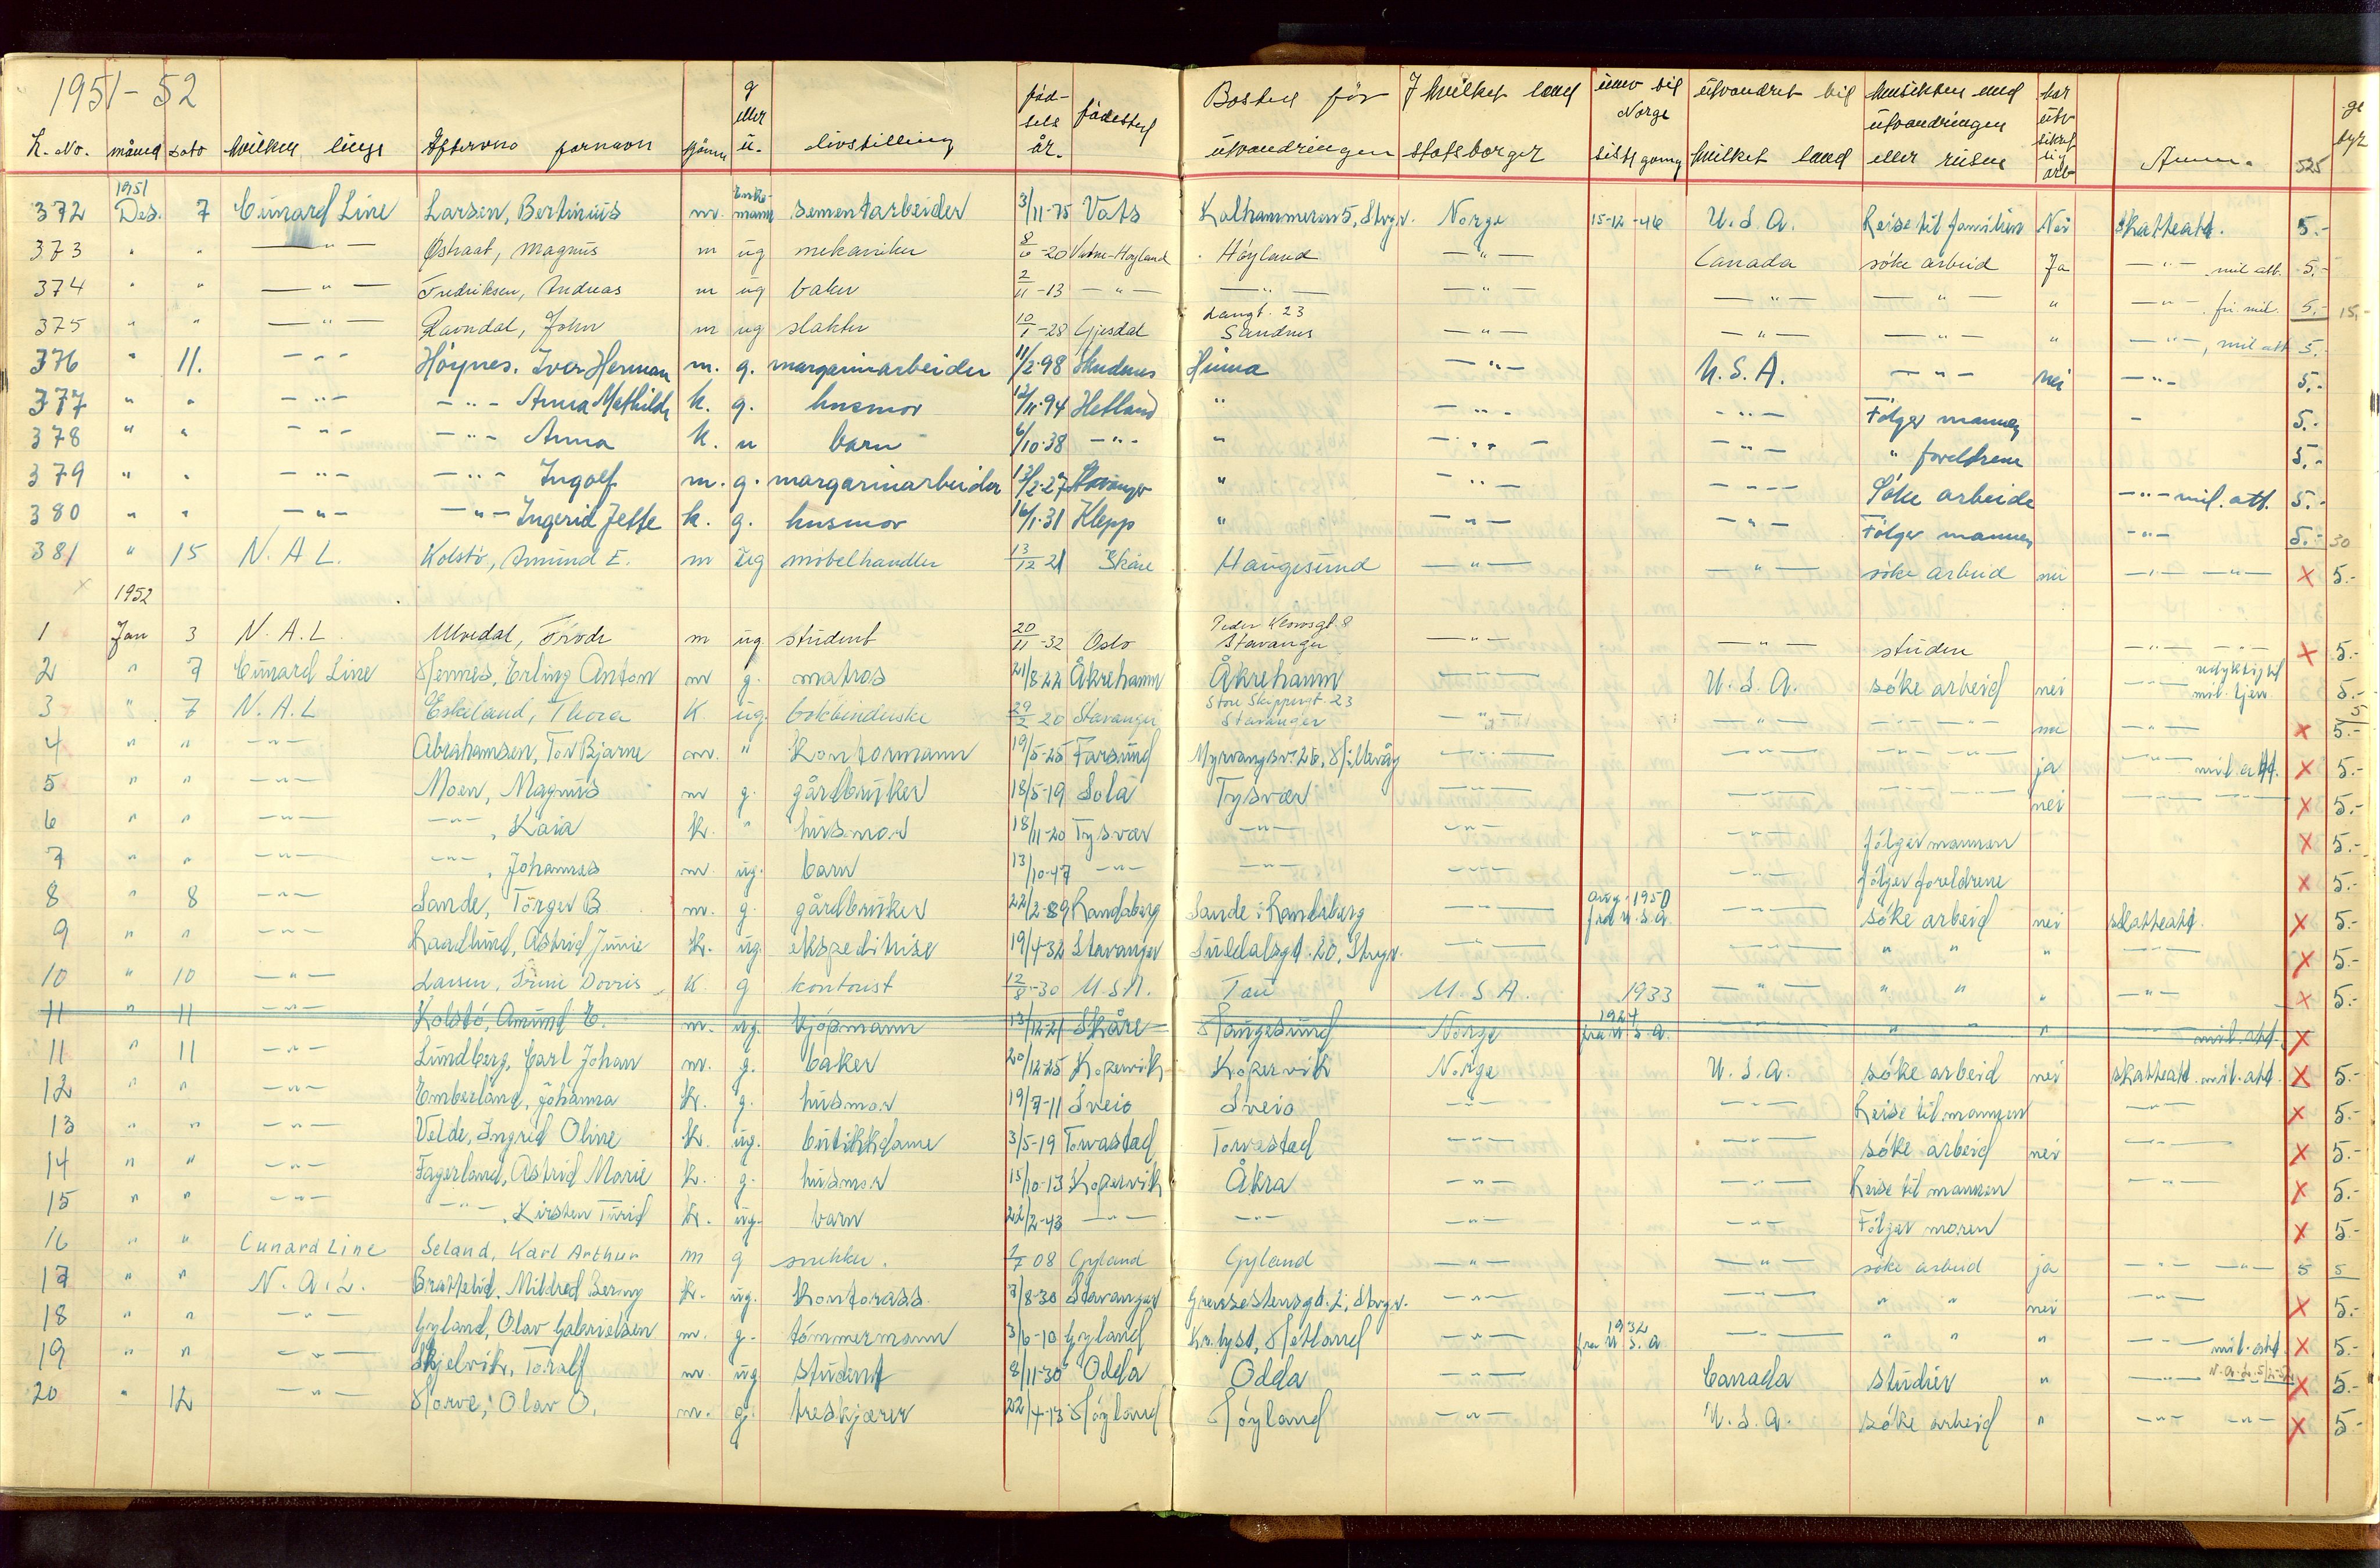 1951-52
L. No. måned dato hvilken linje Efternavn fornavn kjønn g eller u. livsstilling fød-sels år. fødested Bosted før utvandringen I hvilket land statsborger innv til Norge siste gang utvandret til hvilket land hensikten med utvandringen eller reisen har utv sikret sig arb Anm. 525
1951
372 Des. 7 Cunard Line Larsen, Bertinius m. Enkemann sementarbeider 3/11-75 Vats Kalhammeren 5, Stvgr. Norge 15-12-46 U.S.A. Reise til familien Nei skatteatt. 5.-
373 " " —"— Østraat, Magnus m ug mekaniker 8/6-20 Vatne-Høyland Høyland —"— Canada söke arbeid Ja —"— mil att. 5.-
374 " " —"— Fredriksen, Andreas m ug baker 2/11-13 —"— —"— —"— —"— —"— " —"— fri. mil. 5.- 15.-
375 " " —"— Ravndal, John m ug slakter 10/1-28 Gjesdal Langt. 23 Sandnes —"— —"— —"— " —"—, mil att 5.-
376 " 11. —"— Höynes, Iver Herman m. g. margarinarbeider 11/2-98 Skudenes Hinna —"— U.S.A. —"— nei —"— 5.-
377 " " —"— —"— Anna Mathilde k. g. husmor 12/11-94 Hetland " —"— —"— Fölger mannen - 5.-
378 " " —"— —"— Anna k. u barn 6/10-38 —"— " —"— —"— " foreldrene 5.-
379 " " —"— —"— Ingolf m. g. margarinarbeider 13/2-27 Stavanger " —"— —"— Söke arbeide —"— mil. att. 5.-
380 " " —"— —"— Ingerid Jette k. g. husmor 16/1-31 Klepp " —"— —"— Fölger mannen —"— 5.- 30
381 " 15 N.A.L. Kolstö, Amund E. m ug möbelhandler 13/12 21 Skåre Haugesund —"— —"— söke arbeid nei —"— —"— x 5.-
x 1952
1 Jan 3 N.A.L. Ulvedal, Frode m ug student 20/11-32 Oslo Peder Klowsgt. 8 Stavanger —"— —"— studere —"— —"— x 5.-
2 " 7 Cunard Line Hemnes, Erling Anton m g. matros 21/8-22 Åkrehamn Åkrehamn —"— U.S.A. söke arbeid nei —"— udyktig til mil. tjen. 5.-
3 " 7 N.A.L Eskeland, Thora K ug. bokbinderske 29/2 20 Stavanger Store Skippergt. 23 Stavanger —"— —"— —"— —"— nei —"— x 5.-
4 " " —"— Abrahamsen, Tor Bjarne m. " Kontormann 19/5-25 Farsund Myrvangsv. 26, Hillevåg —"— —"— —"— —"— ja —"— mil. att. x 5.-
5 " " —"— Moen, Magnus m g. gårdbruker 18/5-19 Sola Tysvær —"— —"— —"— —"— nei —"— —"— x 5.-
6 " " —"— —"—, Kaia k. " husmor 18/11-20 Tysvær —"— —"— —"— fölger mannen x 5.-
7 " " —"— —"—, Johannes m. ug. barn 13/10-47 —"— —"— —"— —"— fölger foreldrene x 5.-
8 " 8 —"— Sande, Törger B. m. g. gårdbruker 22/2-89 Randaberg Sande i Randaberg —"— aug. 1950 fra U.S.A. —"— söke arbeid nei skatteatt. x 5.-
9 " " —"— Raadlund, Astrid Junie k. ug. ekspeditrise 19/4-32 Stavanger Suldalsgt. 20, Stvgr. —"— —"— " " " —"— x 5.-
10 " 10 —"— Larsen, Irene Dorris K g kontorist 12/8-30 U.S.A. Tau U.S.A. 1933 —"— " " " —"— x 5.-
11 " 11 —"— Kolstö, Amund E. m. ug. kjöpmann 13/12-21 Skåre Haugesund Norge 1924 fra U.S.A. —"— " " " mil. att. x
11 " 11 —"— Lundberg, Carl Johan m. g. baker 20/12-25 Kopervik Kopervik Norge U.S.A. söke arbeid nei skatteatt. mil. att. x 5.-
12 " " —"— Emberland, Johanna k. g. husmor 19/7-11 Sveio Sveio —"— —"— Reise til mannen —"— x 5.-
13 " " —"— Velde, Ingrid Oline k. ug. butikkdame 3/5-19 Torvastad Torvastad —"— —"— söke arbeid nei —"— x 5.-
14 " " —"— Fagerland, Astrid Marie k. g. husmor 15/10-13 Kopervik Åkra —"— —"— Reise til mannen —"— x 5.-
15 " " —"— —"—, Kirsten Turid k. ug. barn 22/2-43 —"— —"— —"— —"— Fölger moren x 5.-
16 " " Cunard Line Seland, Karl Arthur m g snekker. 7/7 08 Gyland Gyland —"— —"— söke arbeid ja —"— —"— 5 5
17 " " N.A.L. Brattelid, Mildred Berny k. ug. Kontorass. 7/8-30 Stavanger Grensestensgt. 2, Stvgr. —"— —"— " " nei —"— x 5.-
18 " " —"— Gyland, Olav Gabrielsen m. g. tömmermann 3/6-10 Gyland Kr. lyst, Hetland —"— 1932 fra U.S.A. —"— " " " —"— mil. att. x 5.-
19 " " —"— Skjelvik, Toralf m ug student 8/11-30 Odda Odda —"— Canada studier " —"— x 5.-
20 " 12 —"— Horve, Olav O. m. g. treskjærer 22/4-13 Höyland Höyland —"— U.S.A. söke arbeid " —"— —"— x 5.-